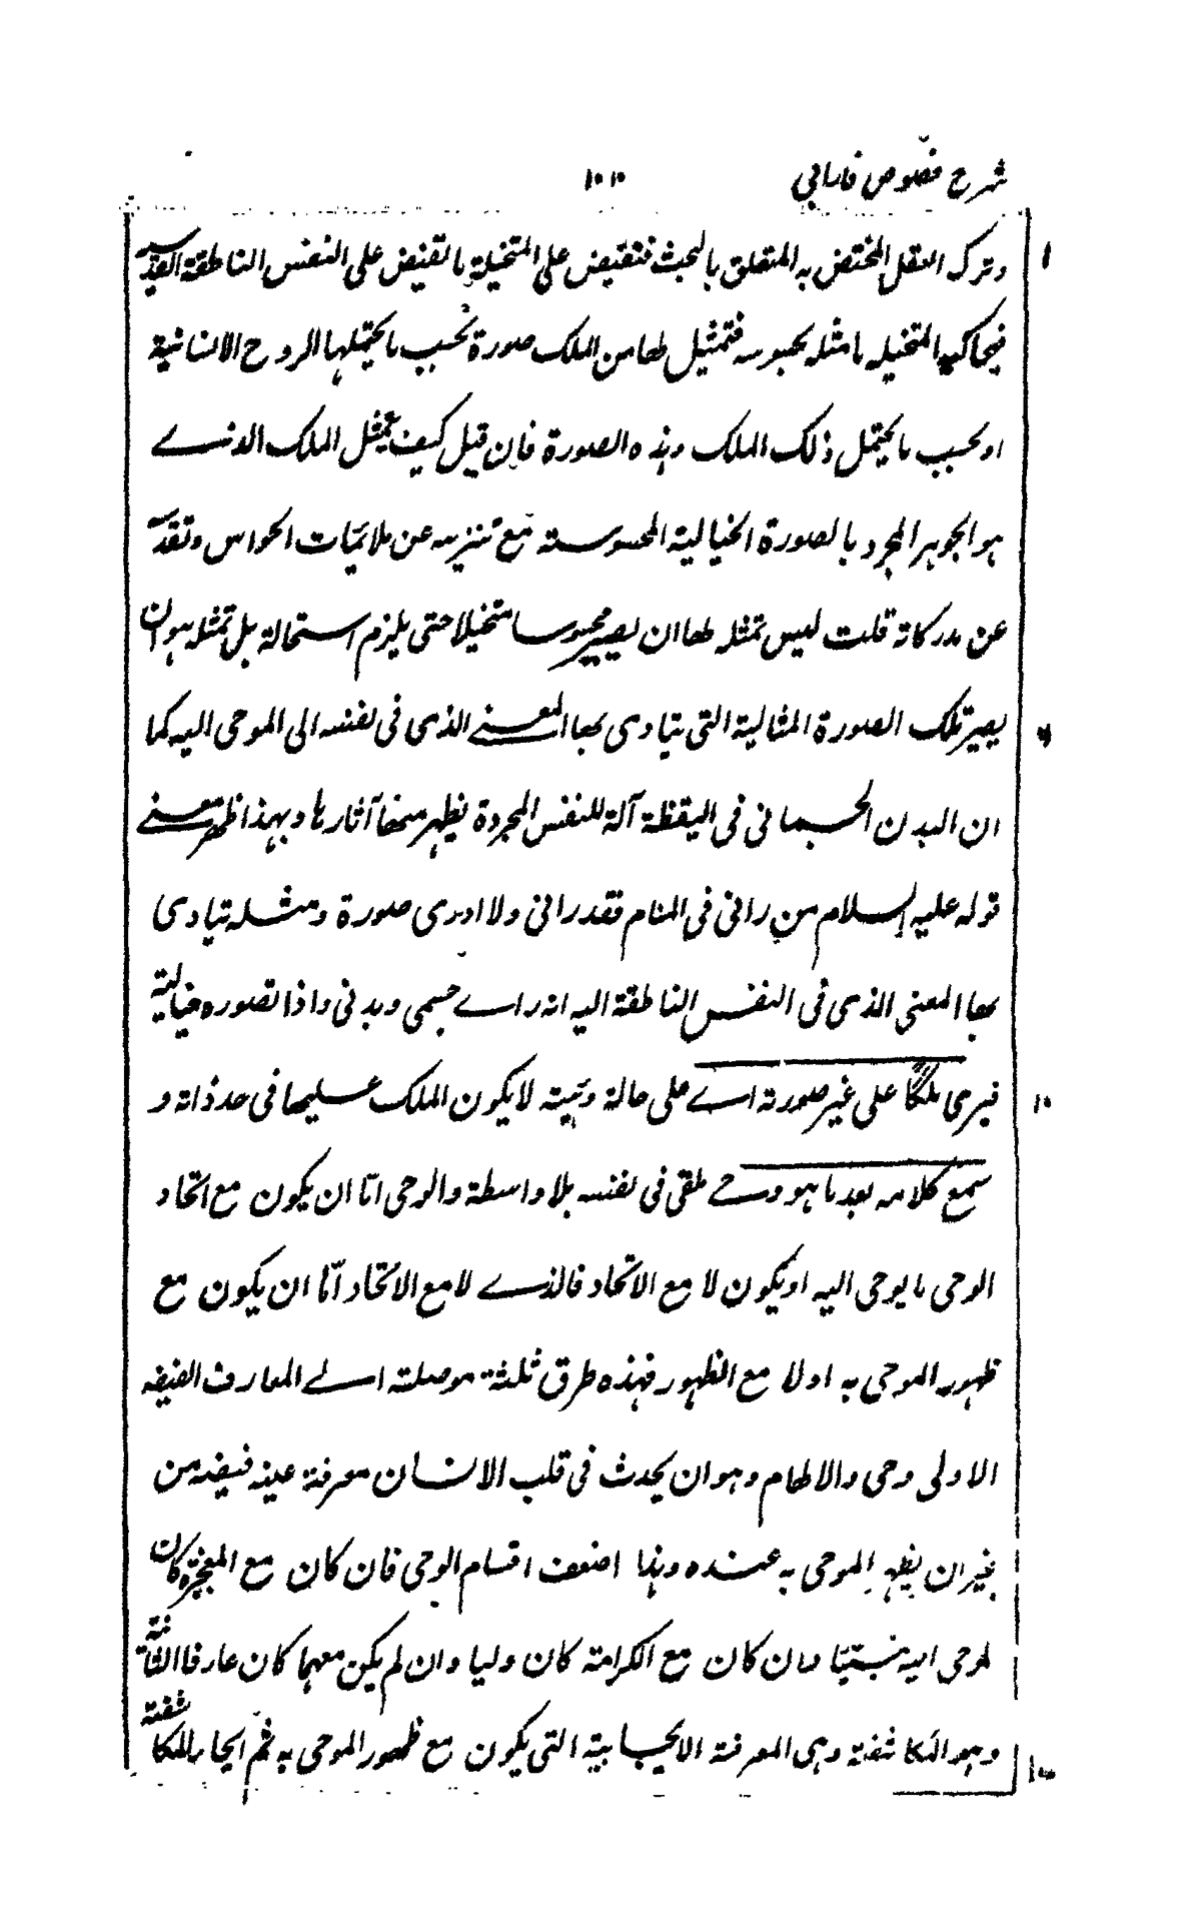 شرح فصوص فارابي ١٠٢
وترك العقل المختص به المتعلق بالبحث فتفيض على المتخيلة ما تفيض على النفس الناطقة القدسية
فيحاكيه المتخيله بامثله محسوسه فتمثيل لها من الملك صورة بحسب ما يحتملها الروح الانسانية
او بحسب ما يحتمل ذلك الملك وهذه الصورة فان قيل كيف يتمثل الملك الذے
هو الجوهر المجرد بالصورة الخيالية المحسوسته مع تنزيهه عن ملائمات الحواس وتقدسه
عن مدركاته قلت ليس تمثله لها ان يصير محسوسا متخيلا حتى يلزم استحالة بل تمثله هو ان
يصير تلك الصورة المثالية التى يتادى بها المعنے الذى فى نفسه الى الموحى اليه كما
ان البدن الجسمانى فى اليقظة آلة للنفس المجردة يظهر منها آثارها وبهذا ظهر معنے
قوله عليه السلام من رانى فى المنام فقد رانى ولا ادرى صورة ومثله تيادى
بها المعنى الذى فى النفس الناطقة اليه انه راے جسمى وبدنى واذا تصوره خيالية
فيرى ملكًا على غير صورته اے على حالة وهيئته لا يكون الملك عليها فى حد ذاته و
سمع كلامه بعد ما هو وحے ملقى فى نفسه بلا واسطة والوحى امّا ان يكون مع اتحاد
الوحى ما يوحى اليه او يكون لا مع الاتحاد فالذے لا مع الاتحاد امّا ان يكون مع
ظهور الموحى به اولا مع الظهور فهذه طرق ثلثة موصلته الے المعارف
الاولى وحى والالهام وهو ان يحدث فى قلب الانسان معرفة عينه فيضه من
غير ان يظهر الموحى به عنده وهذا اضعف اقسام الوحى فان كان مع المعجزة كان
لموحى اليه نبيّا وان كان مع الكرامته كان وليا وان لم يكن معهما كان عارفا الثانية
وهو المكاشفة وهى المعرفته الايجابية التى يكون مع ظهور الموحى به ثم ايجاب المكاشفتة
١
٦
١٠
١٧